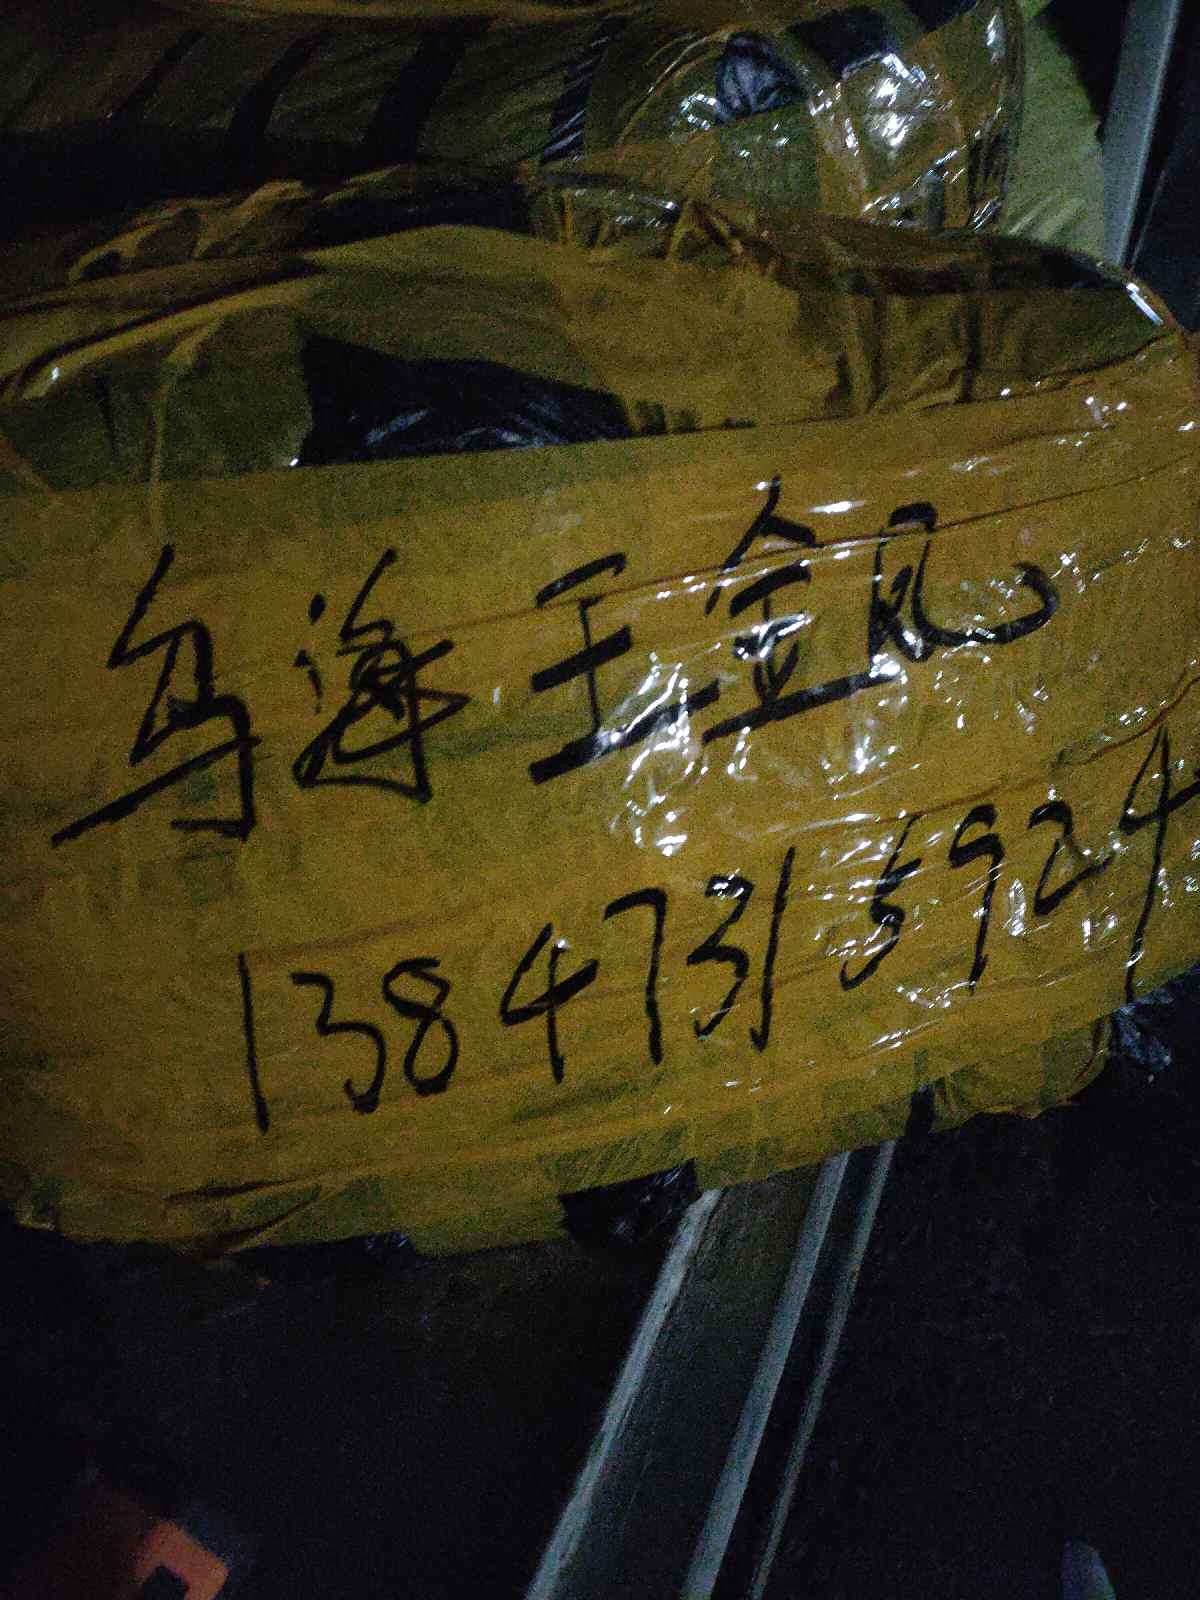 乌海王金凤
13847315924